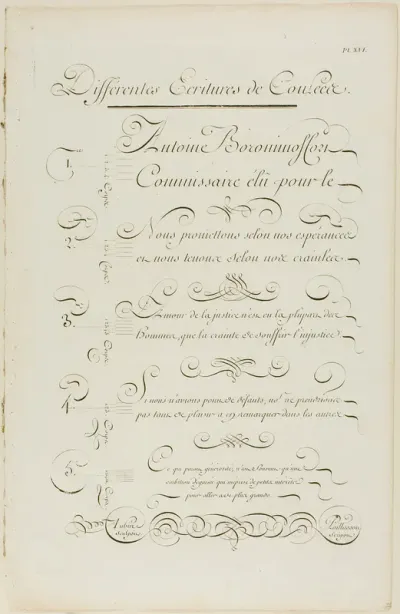 Pl. XVI.
Différentes Ecritures de Coulées.
1.
Antoine
Commissaire élû pour le
2.
Nous promettons selon nos espérances
et nous tenons selon nos craintes.
3.
Amour de la justice n'est en la plupart des
hommes, que la crainte de souffrir l'injustice.
4.
Si nous n'avions point de défauts, ne prendrions
pas tant de plaisir a en remarquer dans les autres
5.
Ce qui paroit générosité, n'est souvent qu'une
ambition déguisée qui méprise de petits interêts
pour aller a de plus grands.
Aubin
Sculpsit
Paillasson
Scripsit